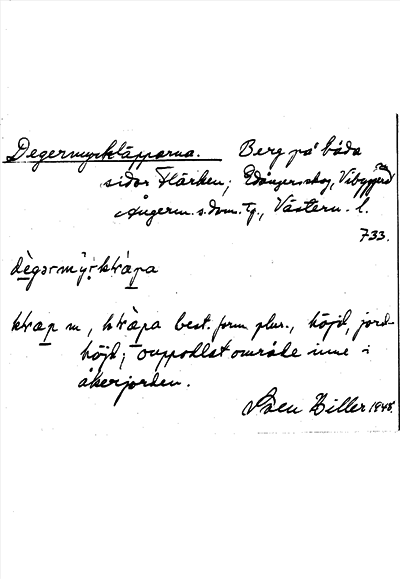 Degermyrkläpparna. Berg på båda
sidor Flärken; Edångersskog, Vibyggerå sn,
Ångerm. s. dom. tg., Västern. l.
733.
dègərmỳrkƚápa
kƚap m, kƚàpa best. form plur., höjd, jord-
höjd; ouppodlat område inne i
åkerjorden.
Sven Hiller 1948.